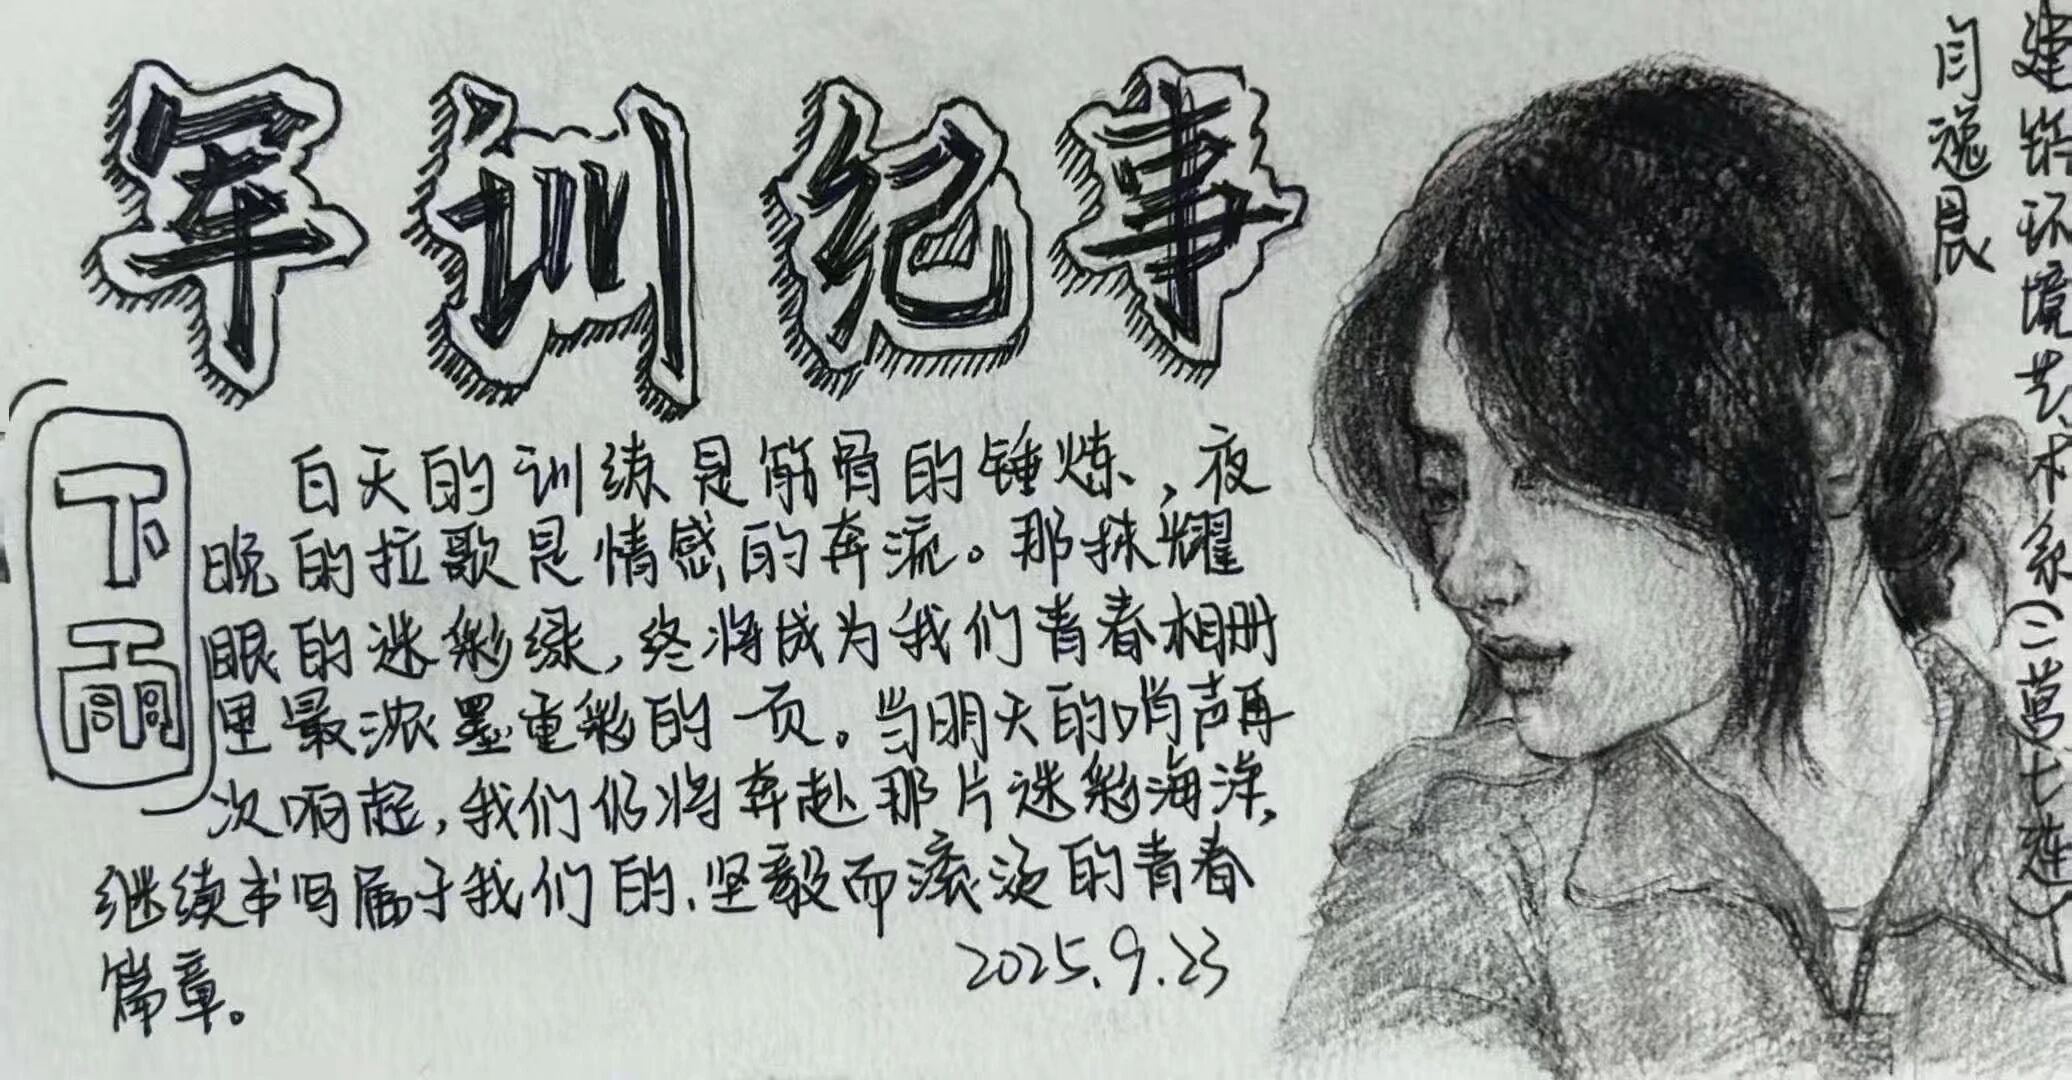 军训纪事
下雨
白天的训练是筋骨的锤炼,夜
晚的拉歌是情感的奔流。那抹耀
眼的迷彩绿,终将成为我们青春相册
里最浓墨重彩的一页。当明天的哨声再
次响起,我们仍将奔赴那片迷彩海洋,
继续书写属于我们的、坚毅而滚烫的青春
篇章。
2025.9.23
建筑环境艺术系(二营七连)
闫逸晨